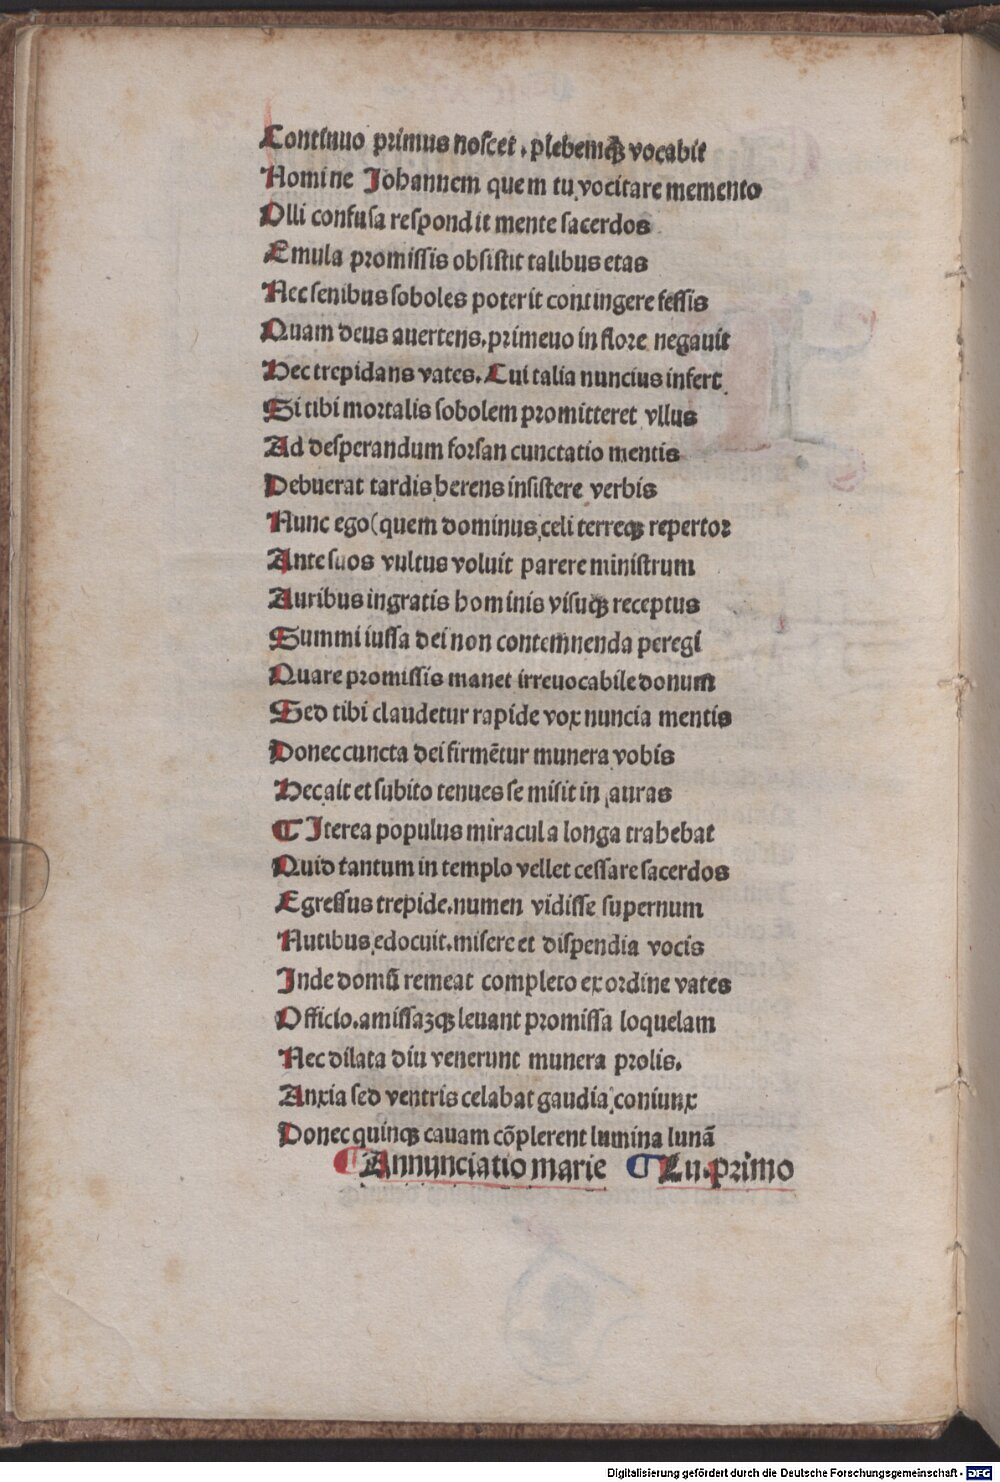 Continuo primus noscet . plebemqꝫ vocabit
Nomine Johannem quem tu vocitare memento
Olli confusa respondit mente sacerdos
Emula promissis obsistit talibus etas
Nec senibus soboles poterit contingere fessis
Quam deus auertens.primeuo in flore negauit
Hec trepidans vates.Cui talia nuncius infert
Si tibi mortalis sobolem promitteret vllus
Ad desperandum forsan cunctatio mentis
Debuerat tardis herens insistere verbis
Nunc ego(quem dominus celi terreqꝫ repertor
Ante suos vultus voluit parere ministrum
Auribus ingratis hominis visuqꝫ receptus
Summi iussa dei non contemnenda peregi
Quare promissis manet irreuocabile donum
Sed tibi claudetur rapide vox nuncia mentis
Donec cuncta dei firmētur munera vobis
Hec ait et subito tenues se misit in auras
¶ Iterea populus miracula longa trahebat
Quid tantum in templo vellet cessare sacerdos
Egressus trepide.numen vidisse supernum
Nutibus edocuit.misere et dispendia vocis
Inde domū remeat completo ex ordine vates
Officio.amissaꝫqꝫ leuant promissa loquelam
Nec dilata diu venerunt munera prolis.
Anxia sed ventris celabat gaudia coniunx
Donec quinqꝫ cauam cōplerent lumina lunā
¶ Annunciatio marie ¶ Lu.primo
Digitalisierung gefördert durch die Deutsche Forschungsgemeinschaft - DFG